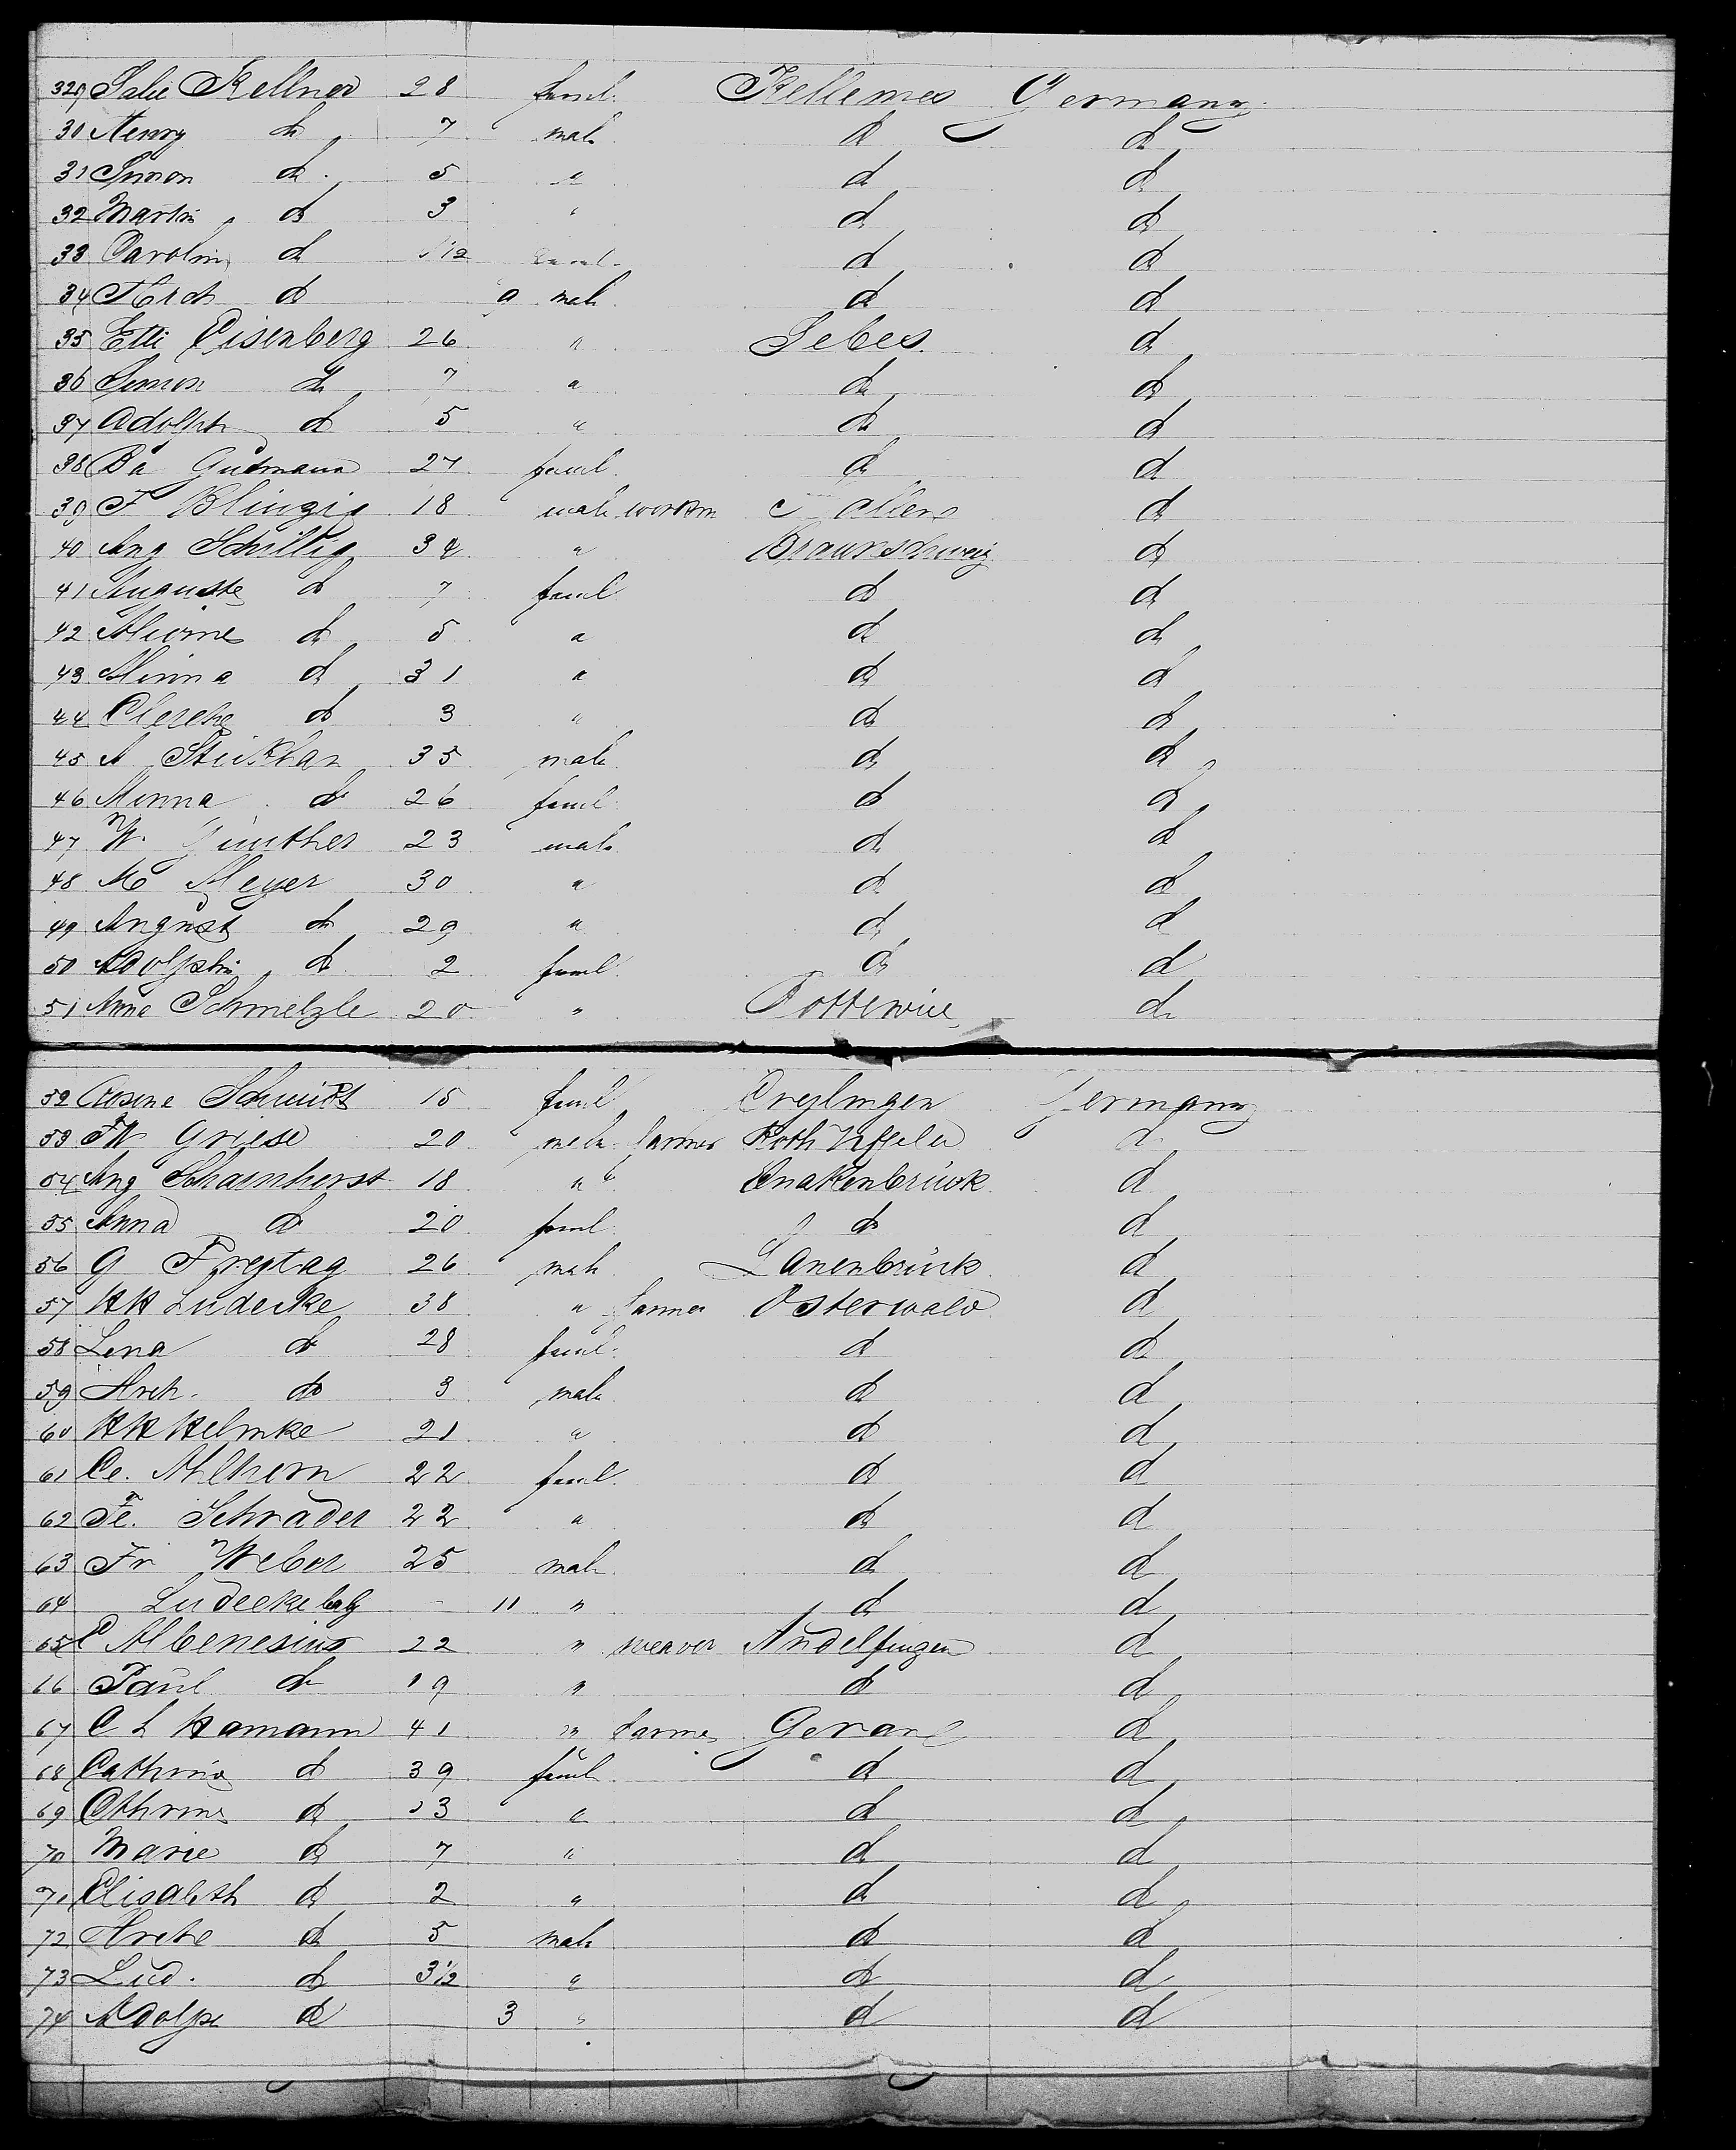 329 Salie Kellner 28 feml. Kellemes Germany
30 Henry do 7 male do do
31 Simon do 5 " do do
32 Martin do 3 " do do
33 Carolin do 1 1/2 feml. do do
34 Herch do 9 male do do
35 Etti Eisenberg 26 " Sebes. do
36 Simon do 7 " do do
37 Adolph do 5 " do do
38 Ba Gutmann 27 feml. do do
39 F Blinzig 18 male workm do
40 Aug Schillig 34 " Braunschweig do
41 Auguste do 7 feml do do
42 do 5 " do do
43 Minna do 31 " do do
44 do 3 " do do
45 A Stuckhan 35 male do do
46 Minna do 26 feml do do
47 W. Günther 23 male do do
48 Mo Meyer 30 " do do
49 August do 29 " do do
50 Adolphin do 2 feml. do do
51 Anna Schmelzle 20 " do
52 Rosine Schmidt 15 feml Creglingen Germany
53 FW Griese 20 male farmer Roth Uffeln do
54 Aug Scharnhorst 18 " " Quakenbrück do
55 Anna do 20 feml. do do
56 G Freytag 26 male Lanenbrück do
57 HH Ludecke 38 " farmer Osterwald do
58 Lena do 28 feml. do do
59 Hrch. do 3 male do do
60 HH Helmke 21 " do do
61 Ce. Ahlhern 22 feml. do do
62 Fe. Schrader 22 " do do
63 Fr Weber 25 male do do
64 Ludecke baby - 11 " do do
65 C Albenesius 22 " weaver Andelfingen do
66 Paul do 19 " do do
67 C L Hamann 41 " farmer do
68 Cathrina do 39 feml. do do
69 Cthrine do 13 " do do
70 Marie do 7 " do do
71 Elisabeth do 2 " do do
72 do 5 male do do
73 Lud. do 3 1/2 " do do
74 Adolph do 3 " do do